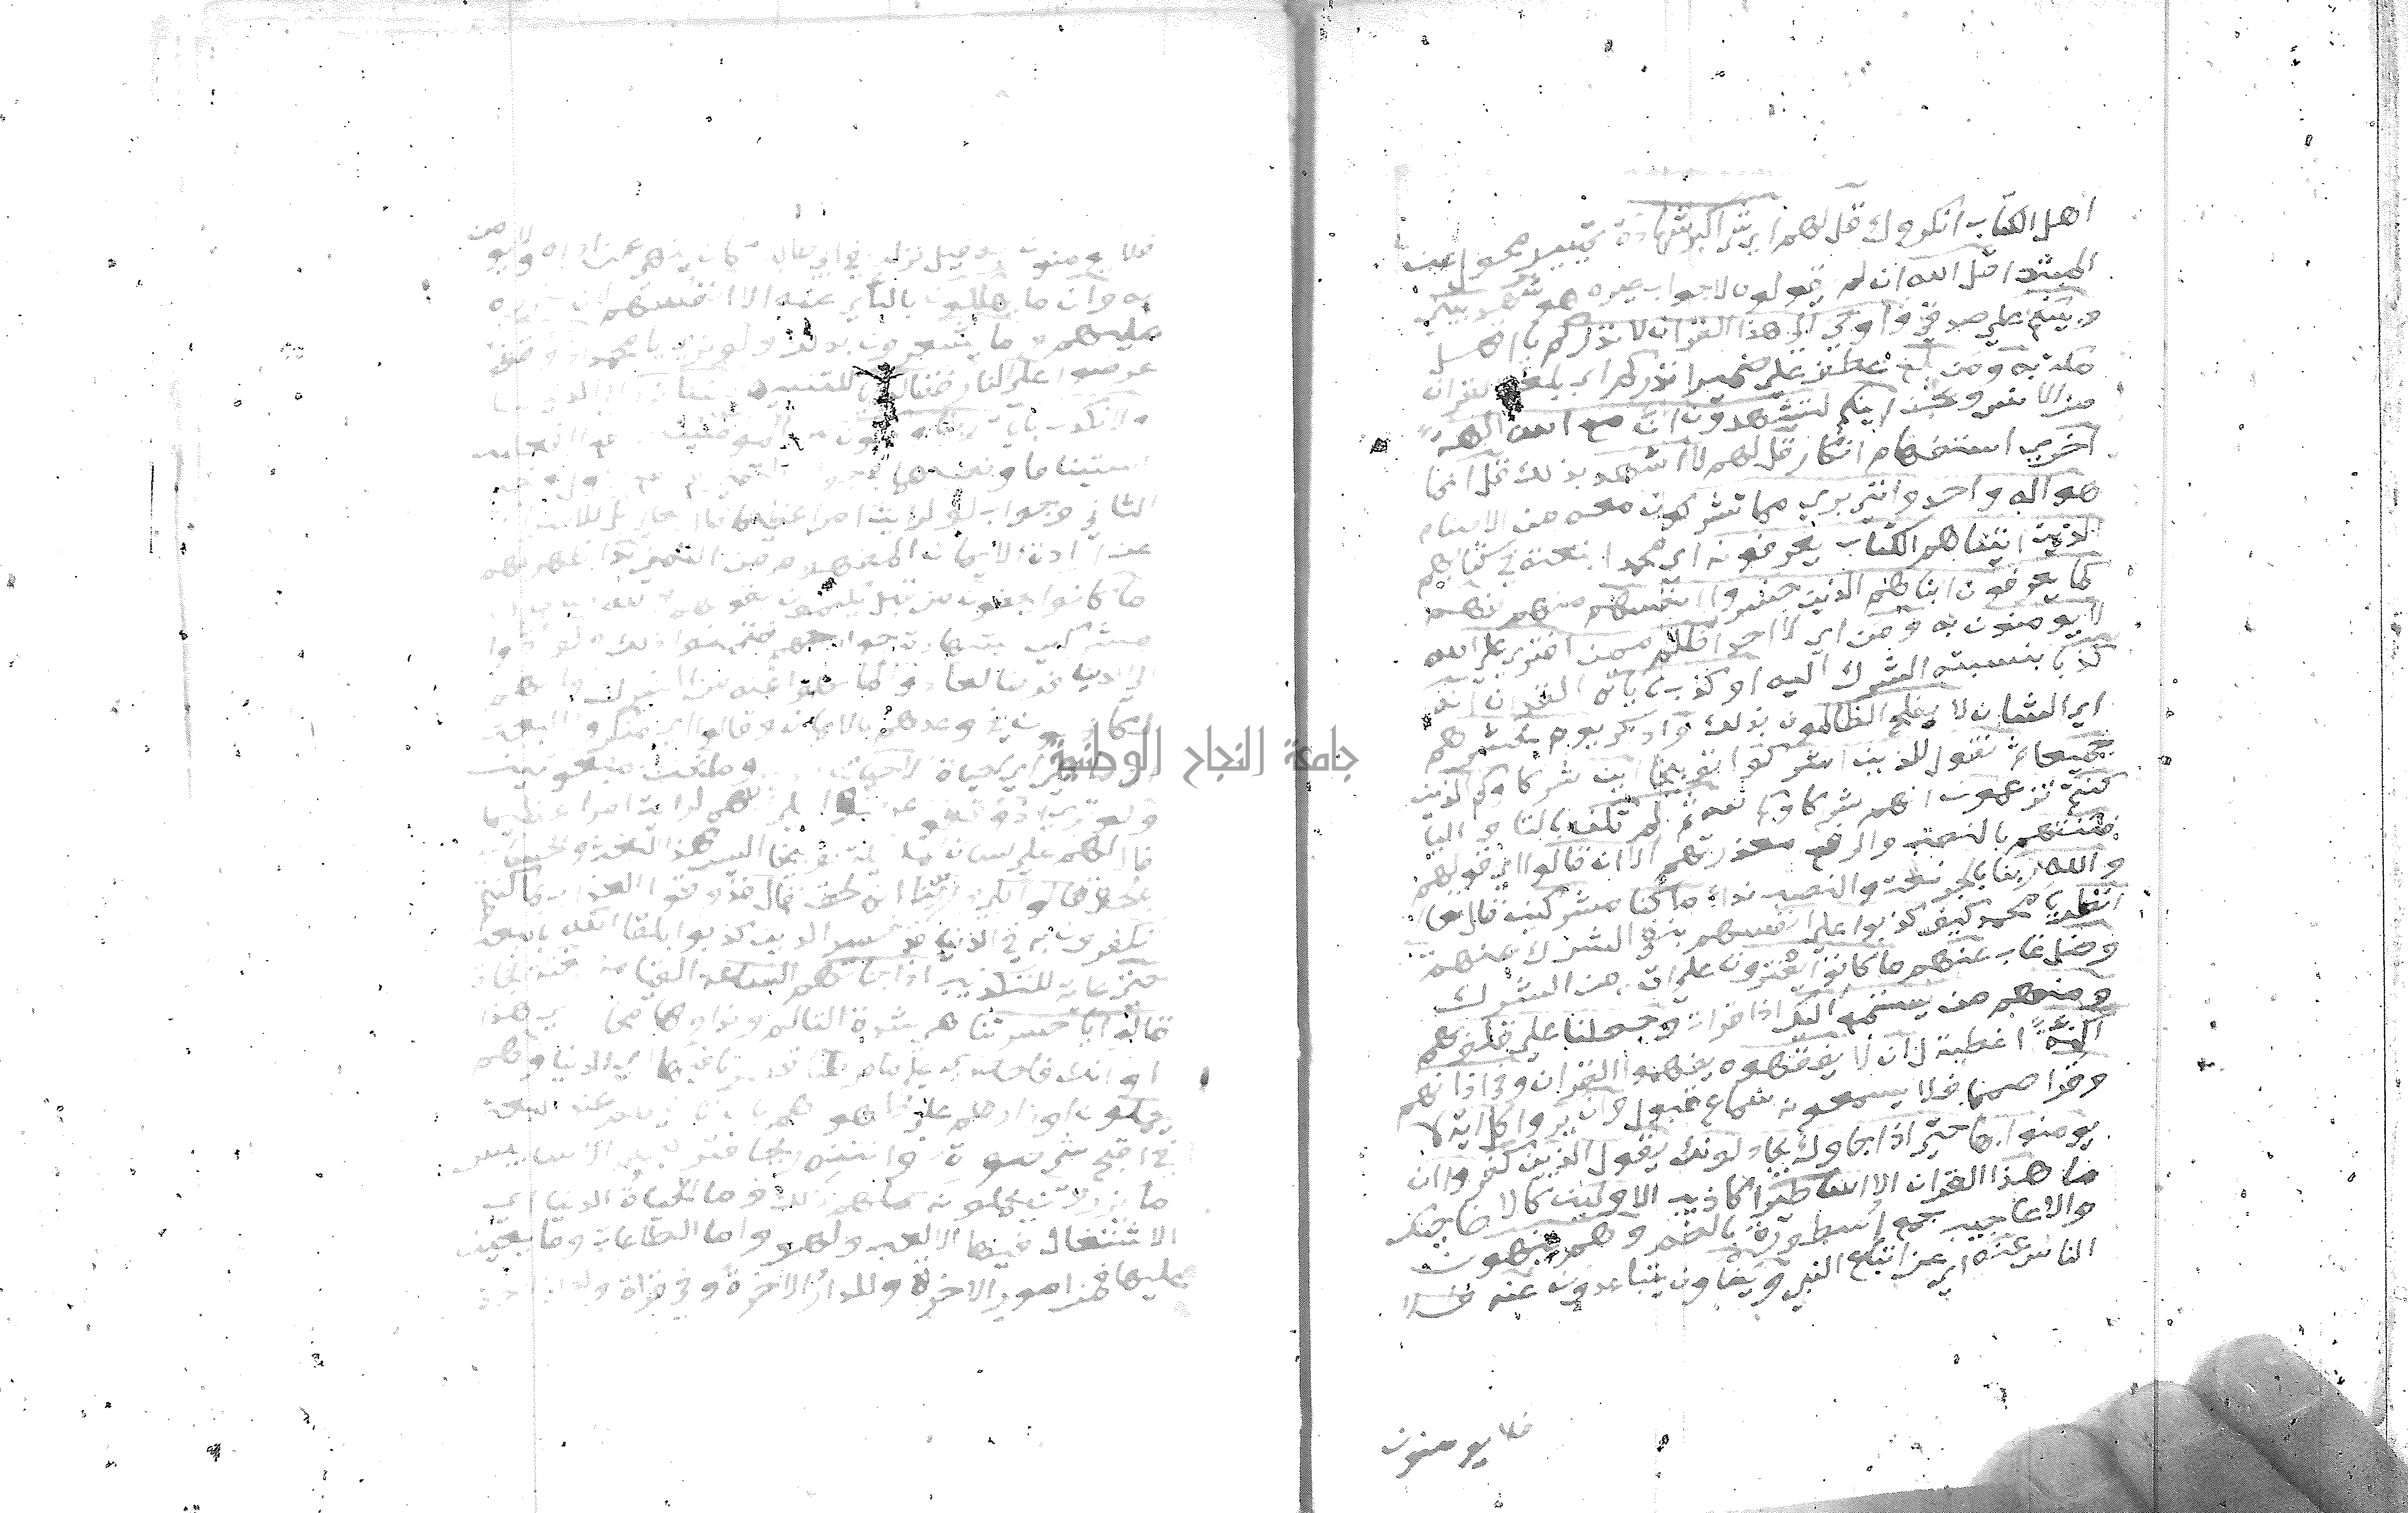 اهل الكتاب انكروك قل لهم اي شي اكبر شهادة تمييز محول عن
المبتدا قل الله ان لم يقولوه لا جواب غيره هو شهيد بيني
وبينكم علي صدقي واوحي الي هذا القران لانذركم يا اهل
مكة به ومن بلغ عطف علي ضمير انذركم اي بلغه القران
من الانس والجن اينكم لتشهدون ان مع الله الهة
اخري استفهام انكار قل لهم لا اشهد بذلك قل انما
هو اله واحد وانني بري مما تشركون معه من الاصنام
الذين اتيناهم الكتاب يعرفونه اي محمدا بنعته في كتابهم
كما يعرفون ابناهم الذين خسروا انفسهم منهم فهم
لا يومنون به ومن اي لا احد اظلم ممن افتري علي الله
كذبا بنسبته الشرك اليه او كذب باياته القران انه
اي الشان لا يفلح الظالمون بذلك واذكر يوم نحشرهم
جميعا ثم نقول للذين اشركوا توبيخا اين شركاوكم الذين
كنتم تزعمون انهم شركا لله ثم لم تكن بالتا واليا
فتنتهم بالنصب والرفع معذرتهم الا ان قالوا اي قولهم
والله ربنا بالجر نعت والنصب ندا ما كنا مشركين قال تعا
انظر يا محمد كيف كذبوا علي انفسهم بنفي الشرك عنهم
وضل غاب عنهم ما كانوا يفترون علي الله من الشرك
ومنهم من يستمع اليك اذا قرات وجعلنا علي قلوبهم
اكنة اغطية لان لا يفقهوه يفهموا القران وفي اذانهم
وقرا صمما فلا يسمعونه سماع قبول وان يروا كل اية لا
يومنوا بها حتي اذا جاوك يجادلونك يقول الذين كفروا ان
ما هذا القران الا اساطير اكاذيب الاولين كالاضاحيك
والاعاجيب جمع اسطورة بالضم وهم ينهون
الناس عنه اي عن اتباع النبي ويناون يتباعدون عنه فلا
فلا يومنون
فلا يومنون به وقيل نزلت في ابي طالب كان ينهي عن اذاه ولا يومن
به وان ما يهلكون بالناي عنه الا انفسهم لان ضرره
عليهم وما يشعرون بذلك ولو تري يا محمد اذ وقفوا
عرضوا علي النار فقالوا يا للتنبيه ليتنا نرد الي الدنيا
ولا نكذب بايات ربنا ونكون من المومنين برفع الفعلين
استينافا ونصبهما في جواب التمني ورفع الاول ونصب
الثاني وجواب لو لرايت امرا عظيما قال تعالي بل للاضراب
عن ارادة الايمان المفهوم من التمني بدا ظهر لهم
ما كانوا يخفون من قبل يكتمون بقولهم والله ربنا ما كنا
مشركين بشهادة جوارحهم فتمنوا ذلك ولو ردوا
الي الدنيا فرضا لعادوا لما نهوا عنه من الشرك وانهم
لكاذبون في وعدهم بالايمان وقالوا اي منكروا البعث
ان ما هي اي الحياة الا حياتنا الدنيا وما نحن بمبعوثين
ولو تري اذ وقفوا عرضوا علي ربهم لرايت امرا عظيما
قال لهم علي لسان الملايكة توبيخا اليس هذا البعث والحساب
بالحق قالوا بلي وربنا انه لحق قال فذوقوا العذاب بما كنتم
تكفرون به في الدنيا قد خسر الذين كذبوا بلقا الله بالبعث
حتي غاية للتكذيب اذا جاتهم الساعة القيامة بغتة فجاة
قالوا يا حسرتنا هي شدة التالم ونداوها مجاز اي هذا
اوانك فاحضري علي ما فرطنا قصرنا فيها اي الدنيا وهم
يحملون اوزارهم علي ظهورهم بان تاتيهم عند البعث
في اقبح شي صورة وانتنه ريحا فتركبهم الا سا بيس
ما يزرون يحملونه حملهم ذلك وما الحياة الدنيا اي
الاشتغال فيها الا لعب ولهو واما الطاعات وما يعين
عليها فمن امور الاخرة وللدار الاخرة وفي قراة ولدار الاخرة
جامعة النجاح الوطنية